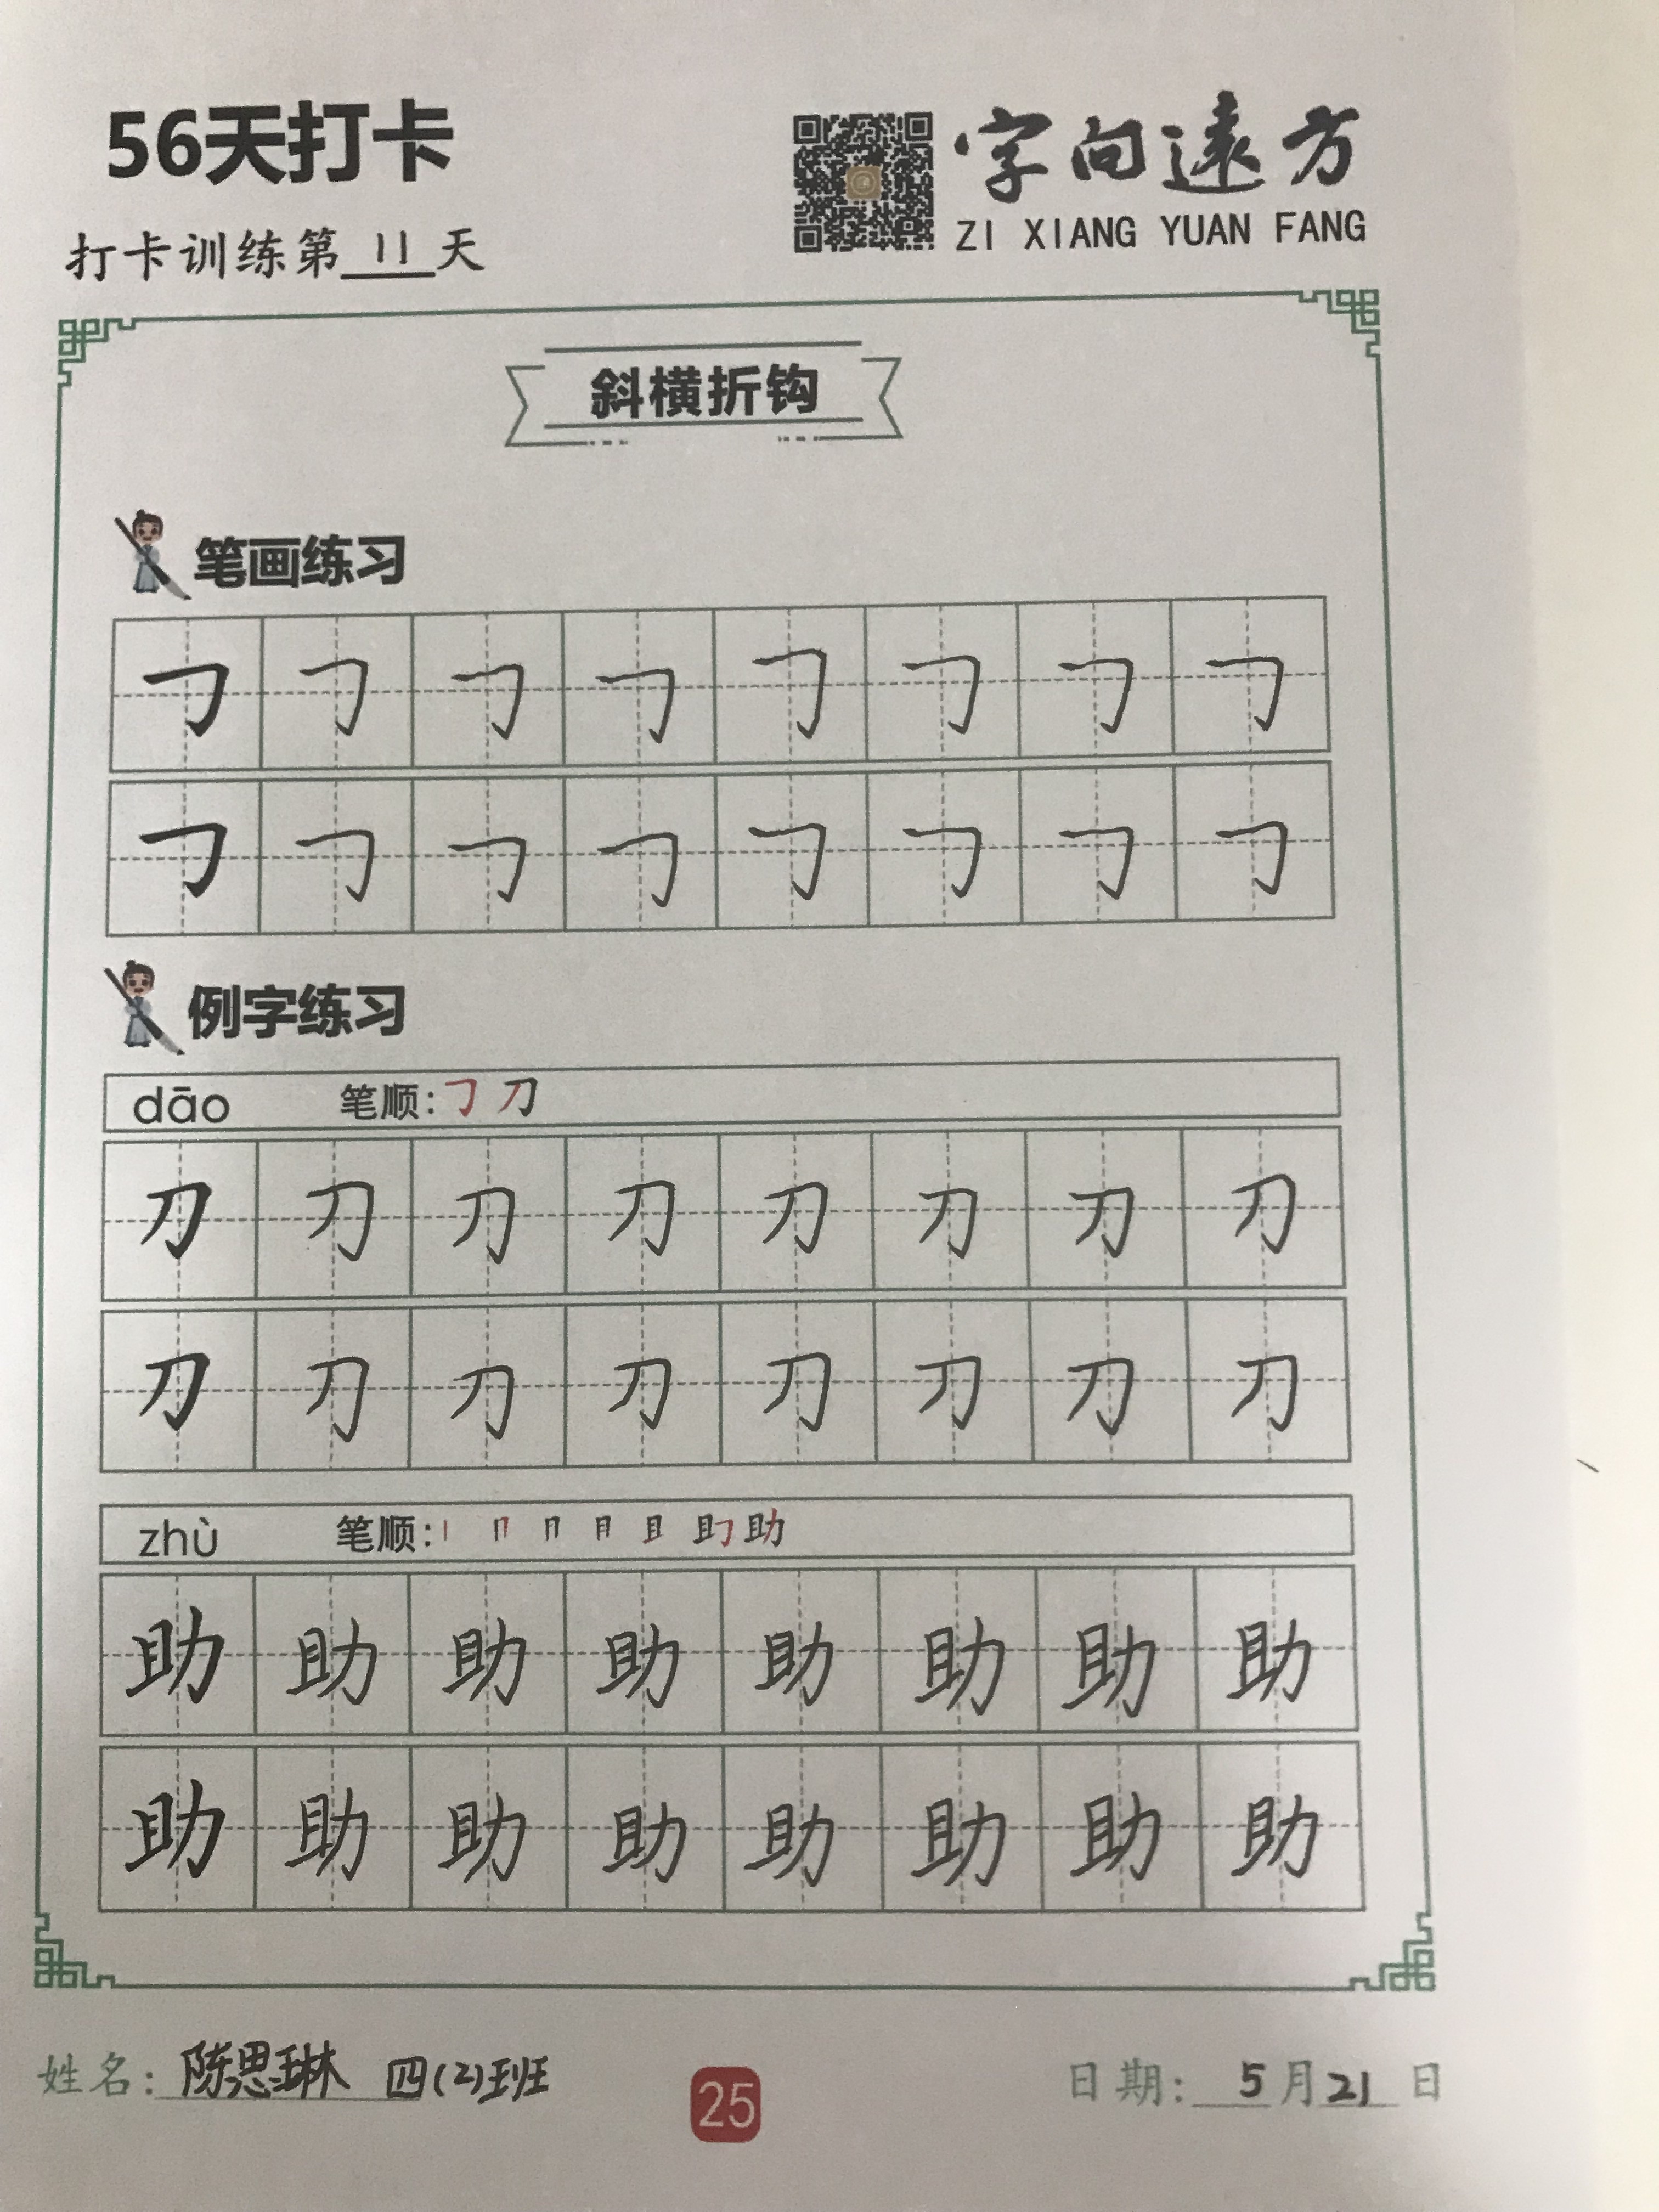 56天打卡
字向遠方
ZI XIANG YUAN FANG
打卡训练第11天
斜横折钩
笔画练习
㇆ ㇆ ㇆ ㇆ ㇆ ㇆ ㇆ ㇆
㇆ ㇆ ㇆ ㇆ ㇆ ㇆ ㇆ ㇆
例字练习
dāo 笔顺:㇆ 刀
刀 刀 刀 刀 刀 刀 刀 刀
刀 刀 刀 刀 刀 刀 刀 刀
zhù 笔顺:丨 冂 月 且 助
助 助 助 助 助 助 助 助
助 助 助 助 助 助 助 助
姓名:陈思琳 四(2)班
25
日期:5月21日